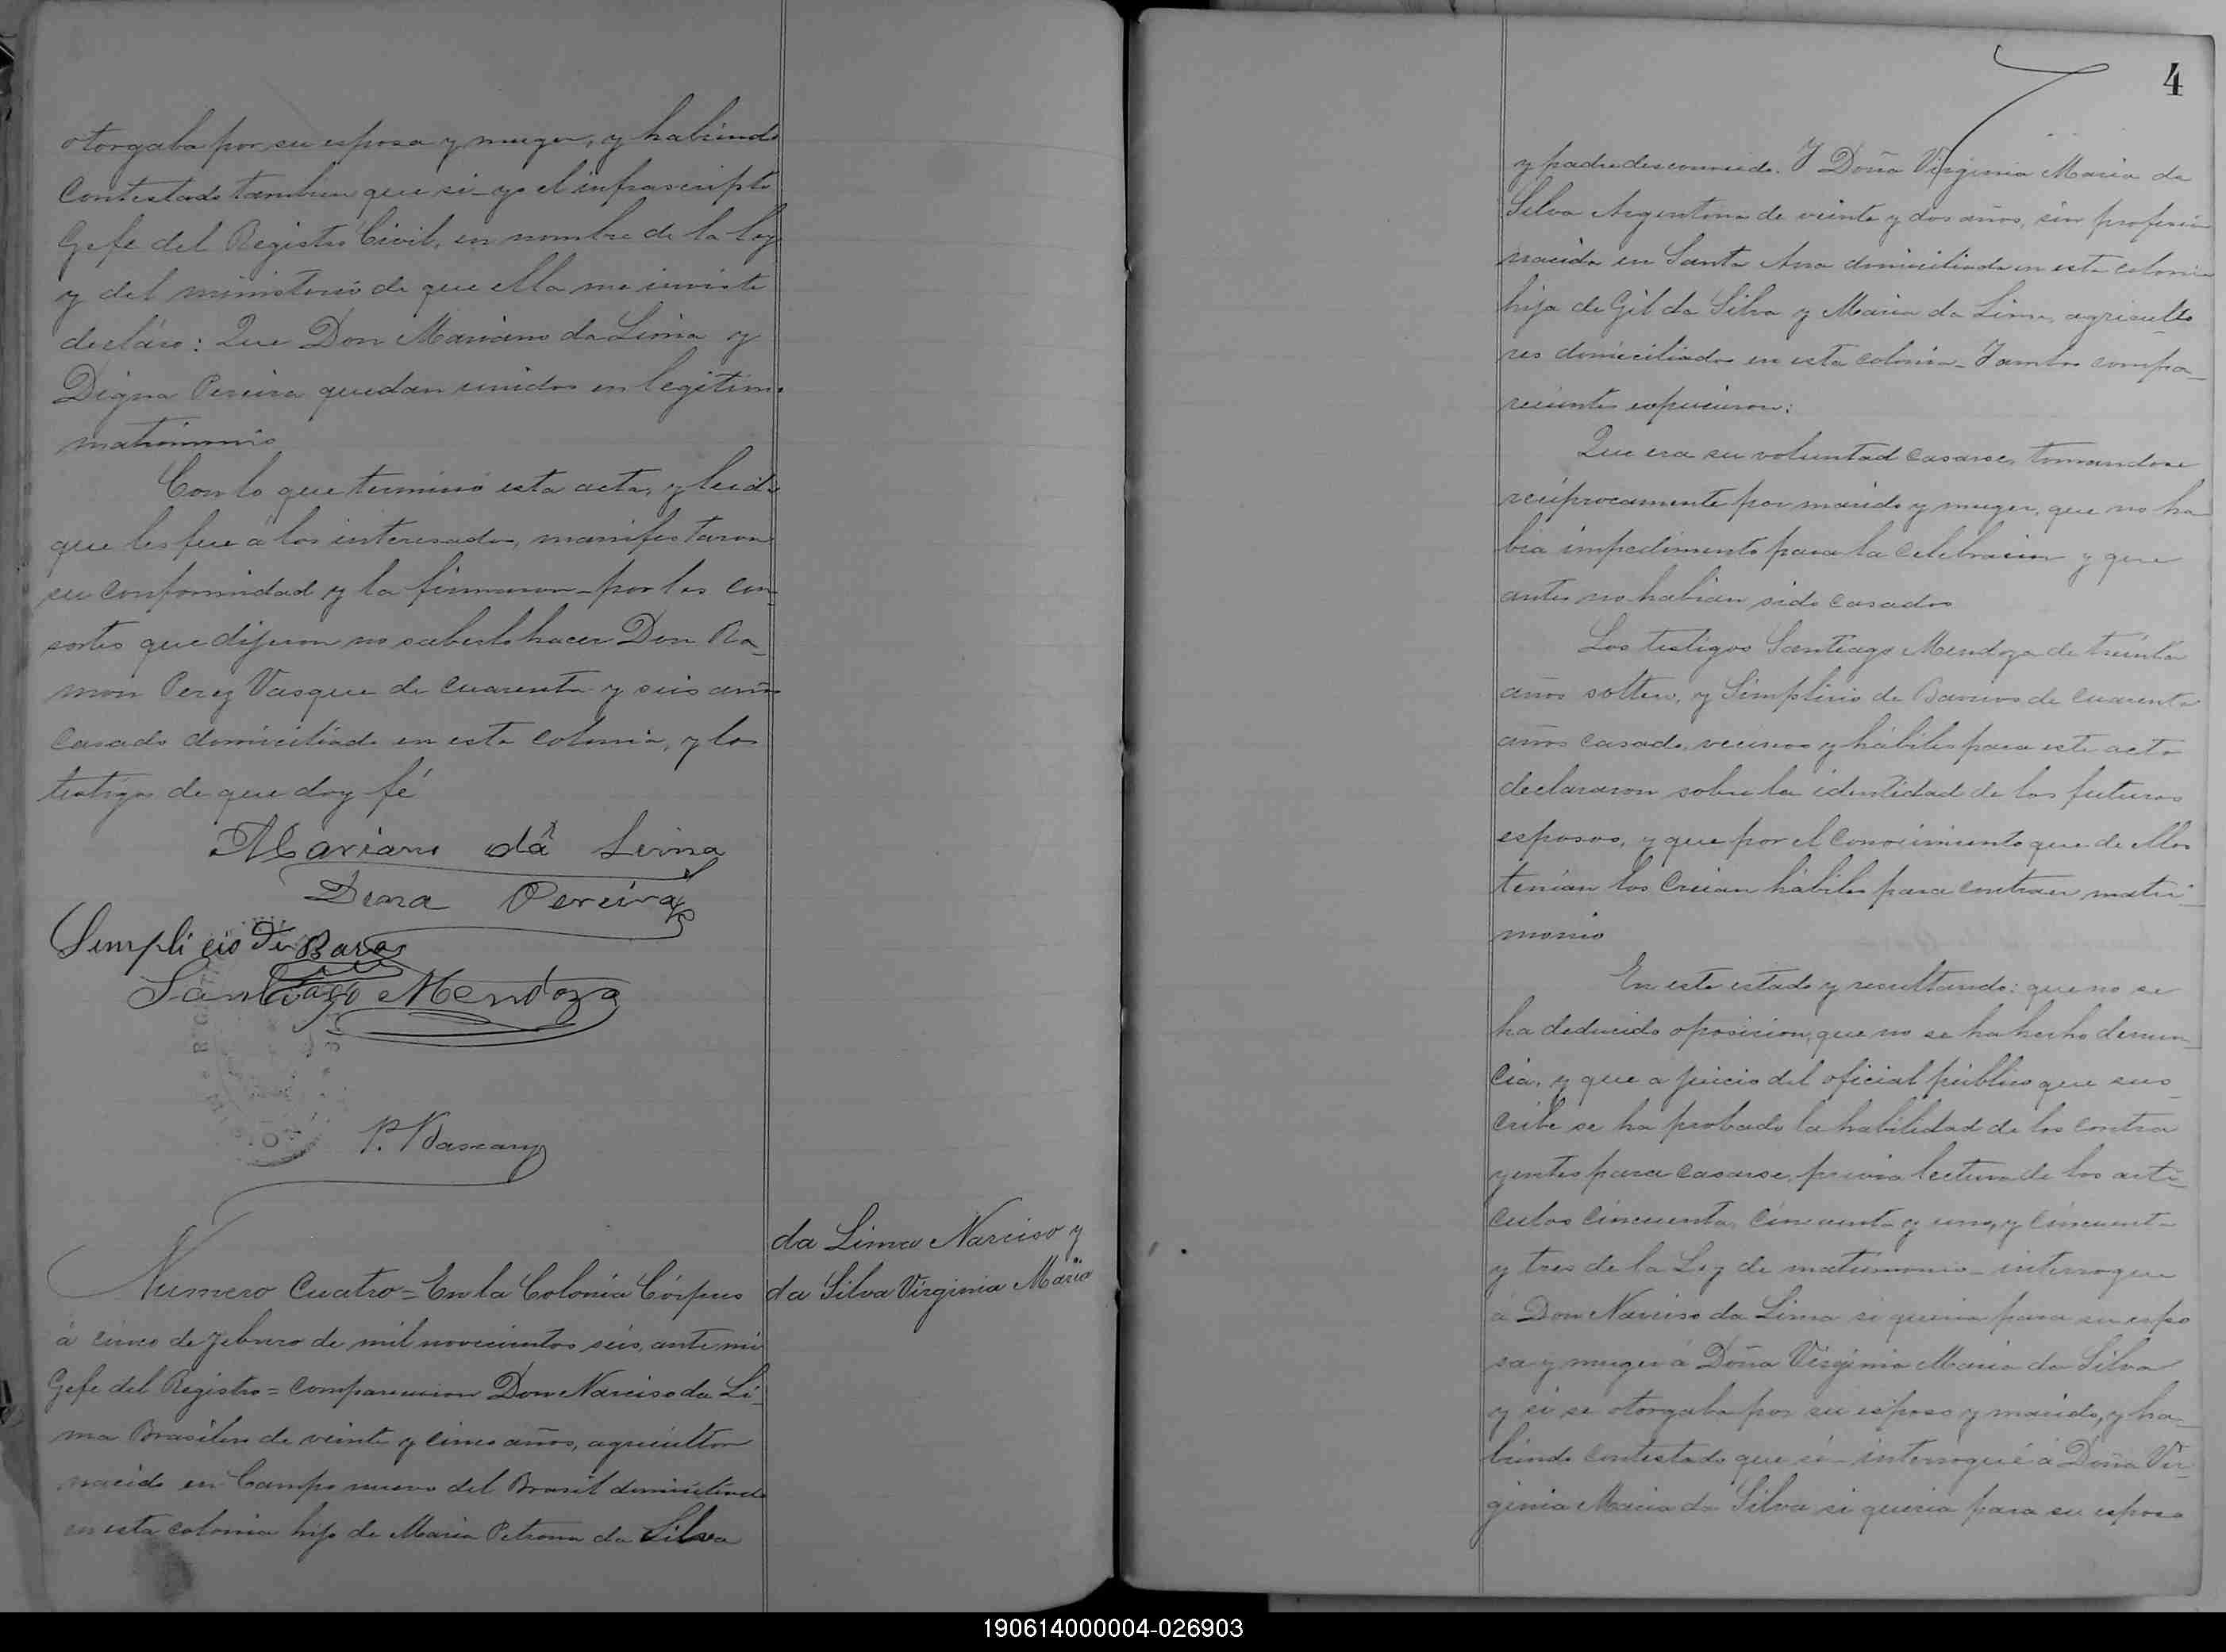 otorgaba por su esposa y muger, y habiendo
contestado tambien que si - yo el infrascripto
Gefe del Registro Civil, en nombre de la Ley
y del ministerio de que ella me inviste
decláro: Que Don Mariano da Lima y
Digna Pereira quedan unidos en legitimo
matrimonio
Con lo que terminó esta acta, y leida
que les fue á los interesados, manifestaron
su conformidad y la firmaron - por los con-
sortes que dijeron no saberlo hacer Don Ra-
mon Perez Vasque de cuarenta y seis años
casado domiciliado en esta colonia, y los
testigos de que doy fé
Mariano da Lima
Dina Pereira
Simplicio De Baros
Santiago Mendoza
Numero Cuatro = En la Colónia Córpus
á cinco de febrero de mil novecientos séis, ante mi
Gefe del Registro = comparecieron Don Narciso da Li-
ma Brasilero de veinte y cinco años, agricultor
nacido en Campo nuevo del Brasil domiciliado
en esta colonia hijo de Maria Petrona da Silva
da Lima Narciso y
da Silva Virginia Maria
4
y padre desconocido. Y Doña Virginia Maria da
Silva Argentina de veinte y dos años, sin profesion
nacida en Santa Ana domiciliada en esta colonia
hija de Gil da Silva y Maria da Lima, agriculto-
res domiciliados en esta colonia - Y ambos compa-
recientes expusieron:
Que era su voluntad casarse, tomandose
recíprocamente por marido y muger, que no ha
bia impedimento para la celebracion y que
antes no habian sido casados
Los testigos Santiago Mendoza de treinta
años soltero, y Simplicio de Barros de cuarenta
años casado, vecinos y hábiles para este acto
declararon sobre la identidad de los futuros
esposos, y que por el conocimiento que de ellos
tenian los creian hábiles para contraer matri-
monio
En este estado y resultando: que no se
ha deducido oposicion, que no se ha hecho denun-
cia, y que a juicio del oficial público que sus-
cribe se ha probado la habilidad de los contra
yentes para casarse, previa lectura de los artí-
culos cincuenta, cincuenta y uno, y cincuenta
y tres de la Ley de matrimonio - interrogue
á Don Narciso da Lima si queria para su espo
sa y muger á Doña Virginia Maria da Silva
y si se otorgaba por su esposo y marido, y ha-
biendo contestado que si - interrogué á Doña Vir-
ginia Maria da Silva si queria para su esposo
190614000004-026903